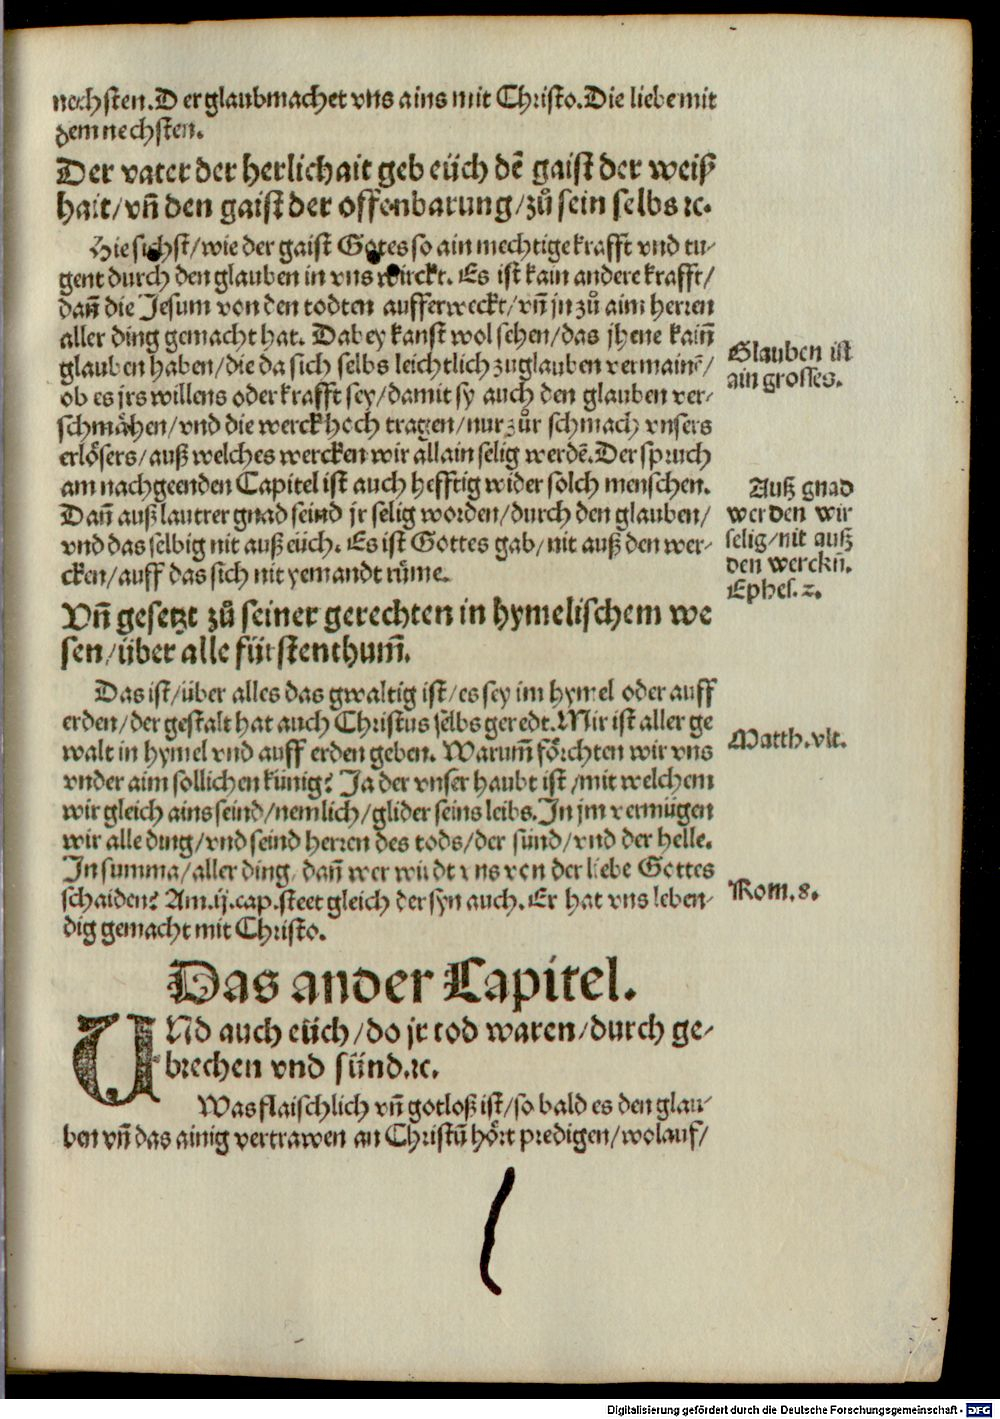 nechsten. Der glaub machet vns ains mit Christo. Die liebe mit
dem nechsten.
Der vater der herlichait geb eüch dē gaist der weiß
hait/ vn̄ den gaist der offenbarung/ zů sein selbs ⁊c.
Hie sichst/ wie der gaist Gotes so ain mechtige krafft vnd tu-
gent durch den glauben in vns wirckt. Es ist kain andere krafft/
dan̄ die Jesum von den todten aufferweckt/ vn̄ jn zů aim herren
aller ding gemacht hat. Dabey kanst wol sehen/ das jhene kain̄
glauben haben/ die da sich selbs leichtlich zuglauben vermainē/
ob es jrs willens oder krafft sey/ damit sy auch den glauben ver-
schmåhen/ vnd die werck hoch tragen/ nur zůr schmach vnsers
erlősers/ auß welches wercken wir allain selig werdē. Der spruch
am nachgeenden Capitel ist auch hefftig wider solch menschen.
Dan̄ auß lautrer gnad seind jr selig worden/ durch den glauben/
vnd das selbig nit auß eüch. Es ist Gottes gab/ nit auß den wer-
cken/ auff das sich nit yemandt růme.
Glauben ist
ain grosses.
Auß gnad
werden wir
selig/ nit auß
den werckn̄.
Ephes. 2.
Vn̄ gesetzt zů seiner gerechten in hymelischem we
sen/ über alle fürstenthum̄.
Das ist/ über alles das gwaltig ist/ es sey im hymel oder auff
erden/ der gestalt hat auch Christus selbs geredt. Mir ist aller ge
walt in hymel vnd auff erden geben. Warum̄ főrchten wir vns
vnder aim sollichen künig? Ja der vnser haubt ist/ mit welchem
wir gleich ains seind/ nemlich/ glider seins leibs. In jm vermügen
wir alle ding/ vnd seind herren des tods/ der sünd/ vnd der helle.
In summa/ aller ding/ dan̄ wer würdt vns von der liebe Gottes
schaiden? Am .ij. cap. steet gleich der syn auch. Er hat vns leben-
dig gemacht mit Christo.
Matth. vlt.
Rom. 8.
Das ander Capitel.
VNd auch eüch/ do jr tod waren/ durch ge-
brechen vnd sünd. ⁊c.
Was flaischlich vn̄ gotloß ist/ so bald es den glau-
ben vn̄ das ainig vertrawen an Christū hőrt predigen/ wolauf/
Digitalisierung gefördert durch die Deutsche Forschungsgemeinschaft - DFG